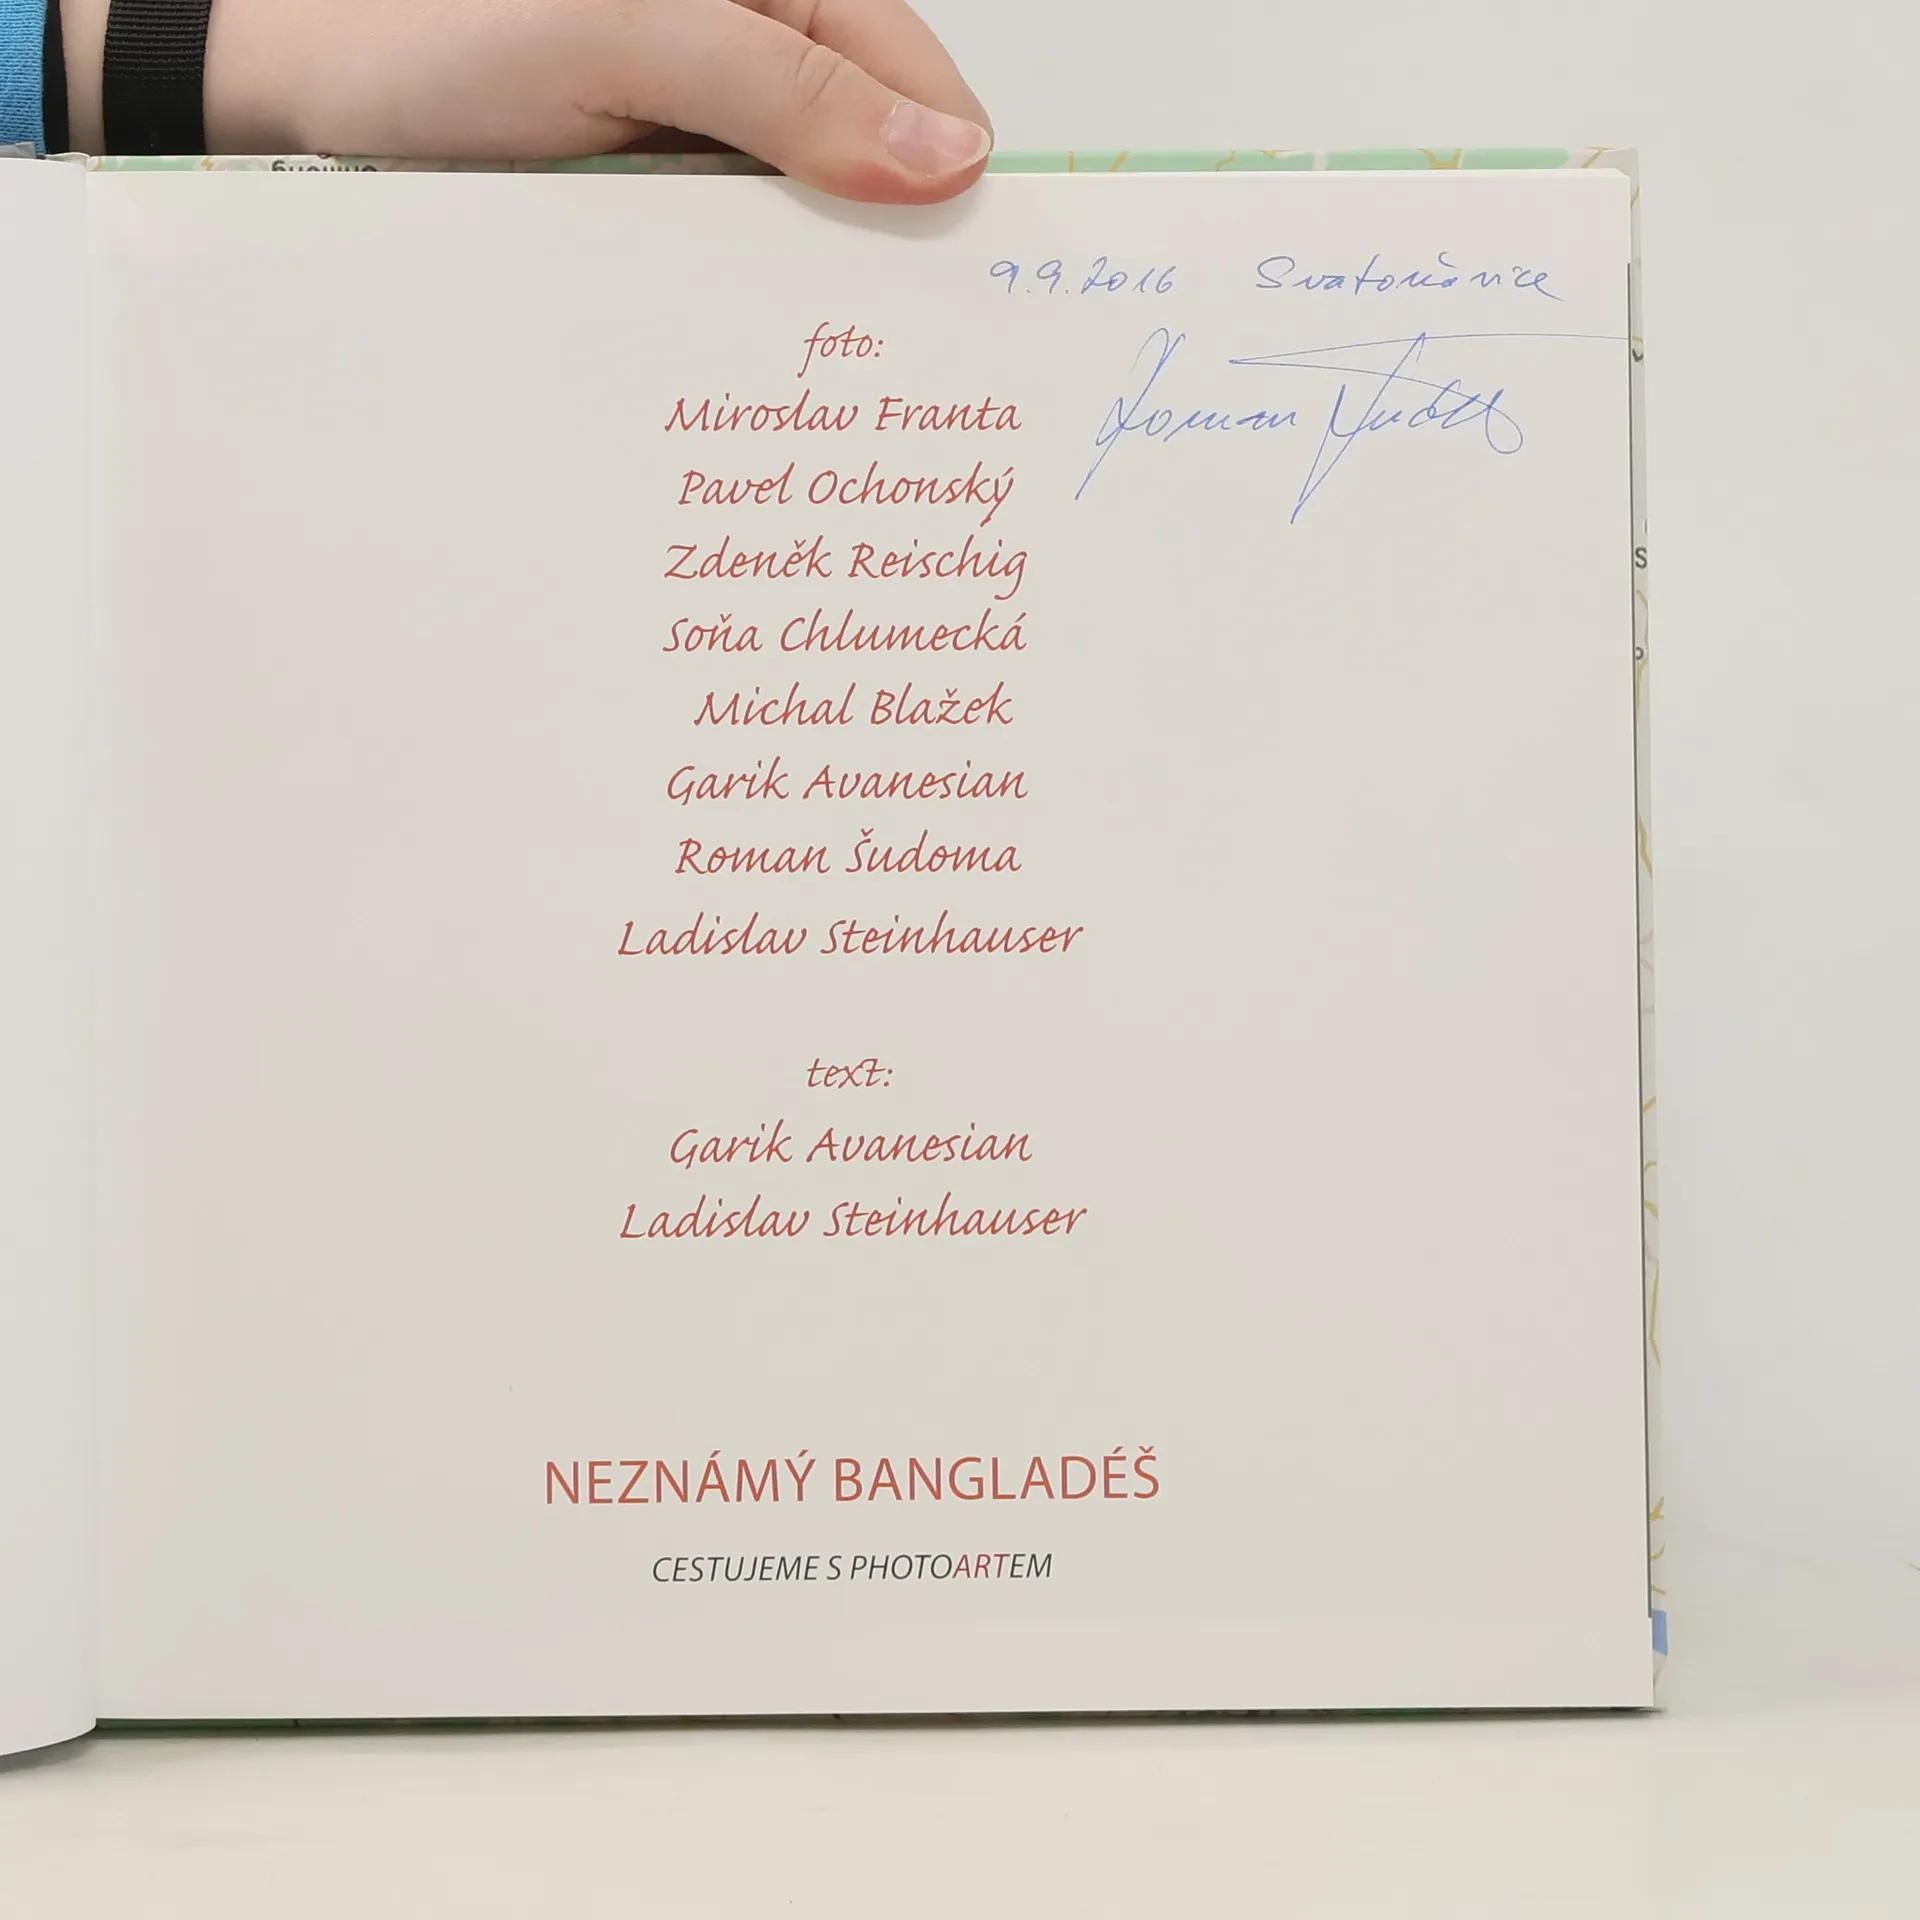 9.9.2016 Svatoňovice
Roman
foto:
Miroslav Franta
Pavel Ochonský
Zdeněk Reischig
Soňa Chlumecká
Michal Blažek
Garik Avanesian
Roman Šudoma
Ladislav Steinhauser
text:
Garik Avanesian
Ladislav Steinhauser
NEZNÁMÝ BANGLADÉŠ
CESTUJEME S PHOTOARTEM